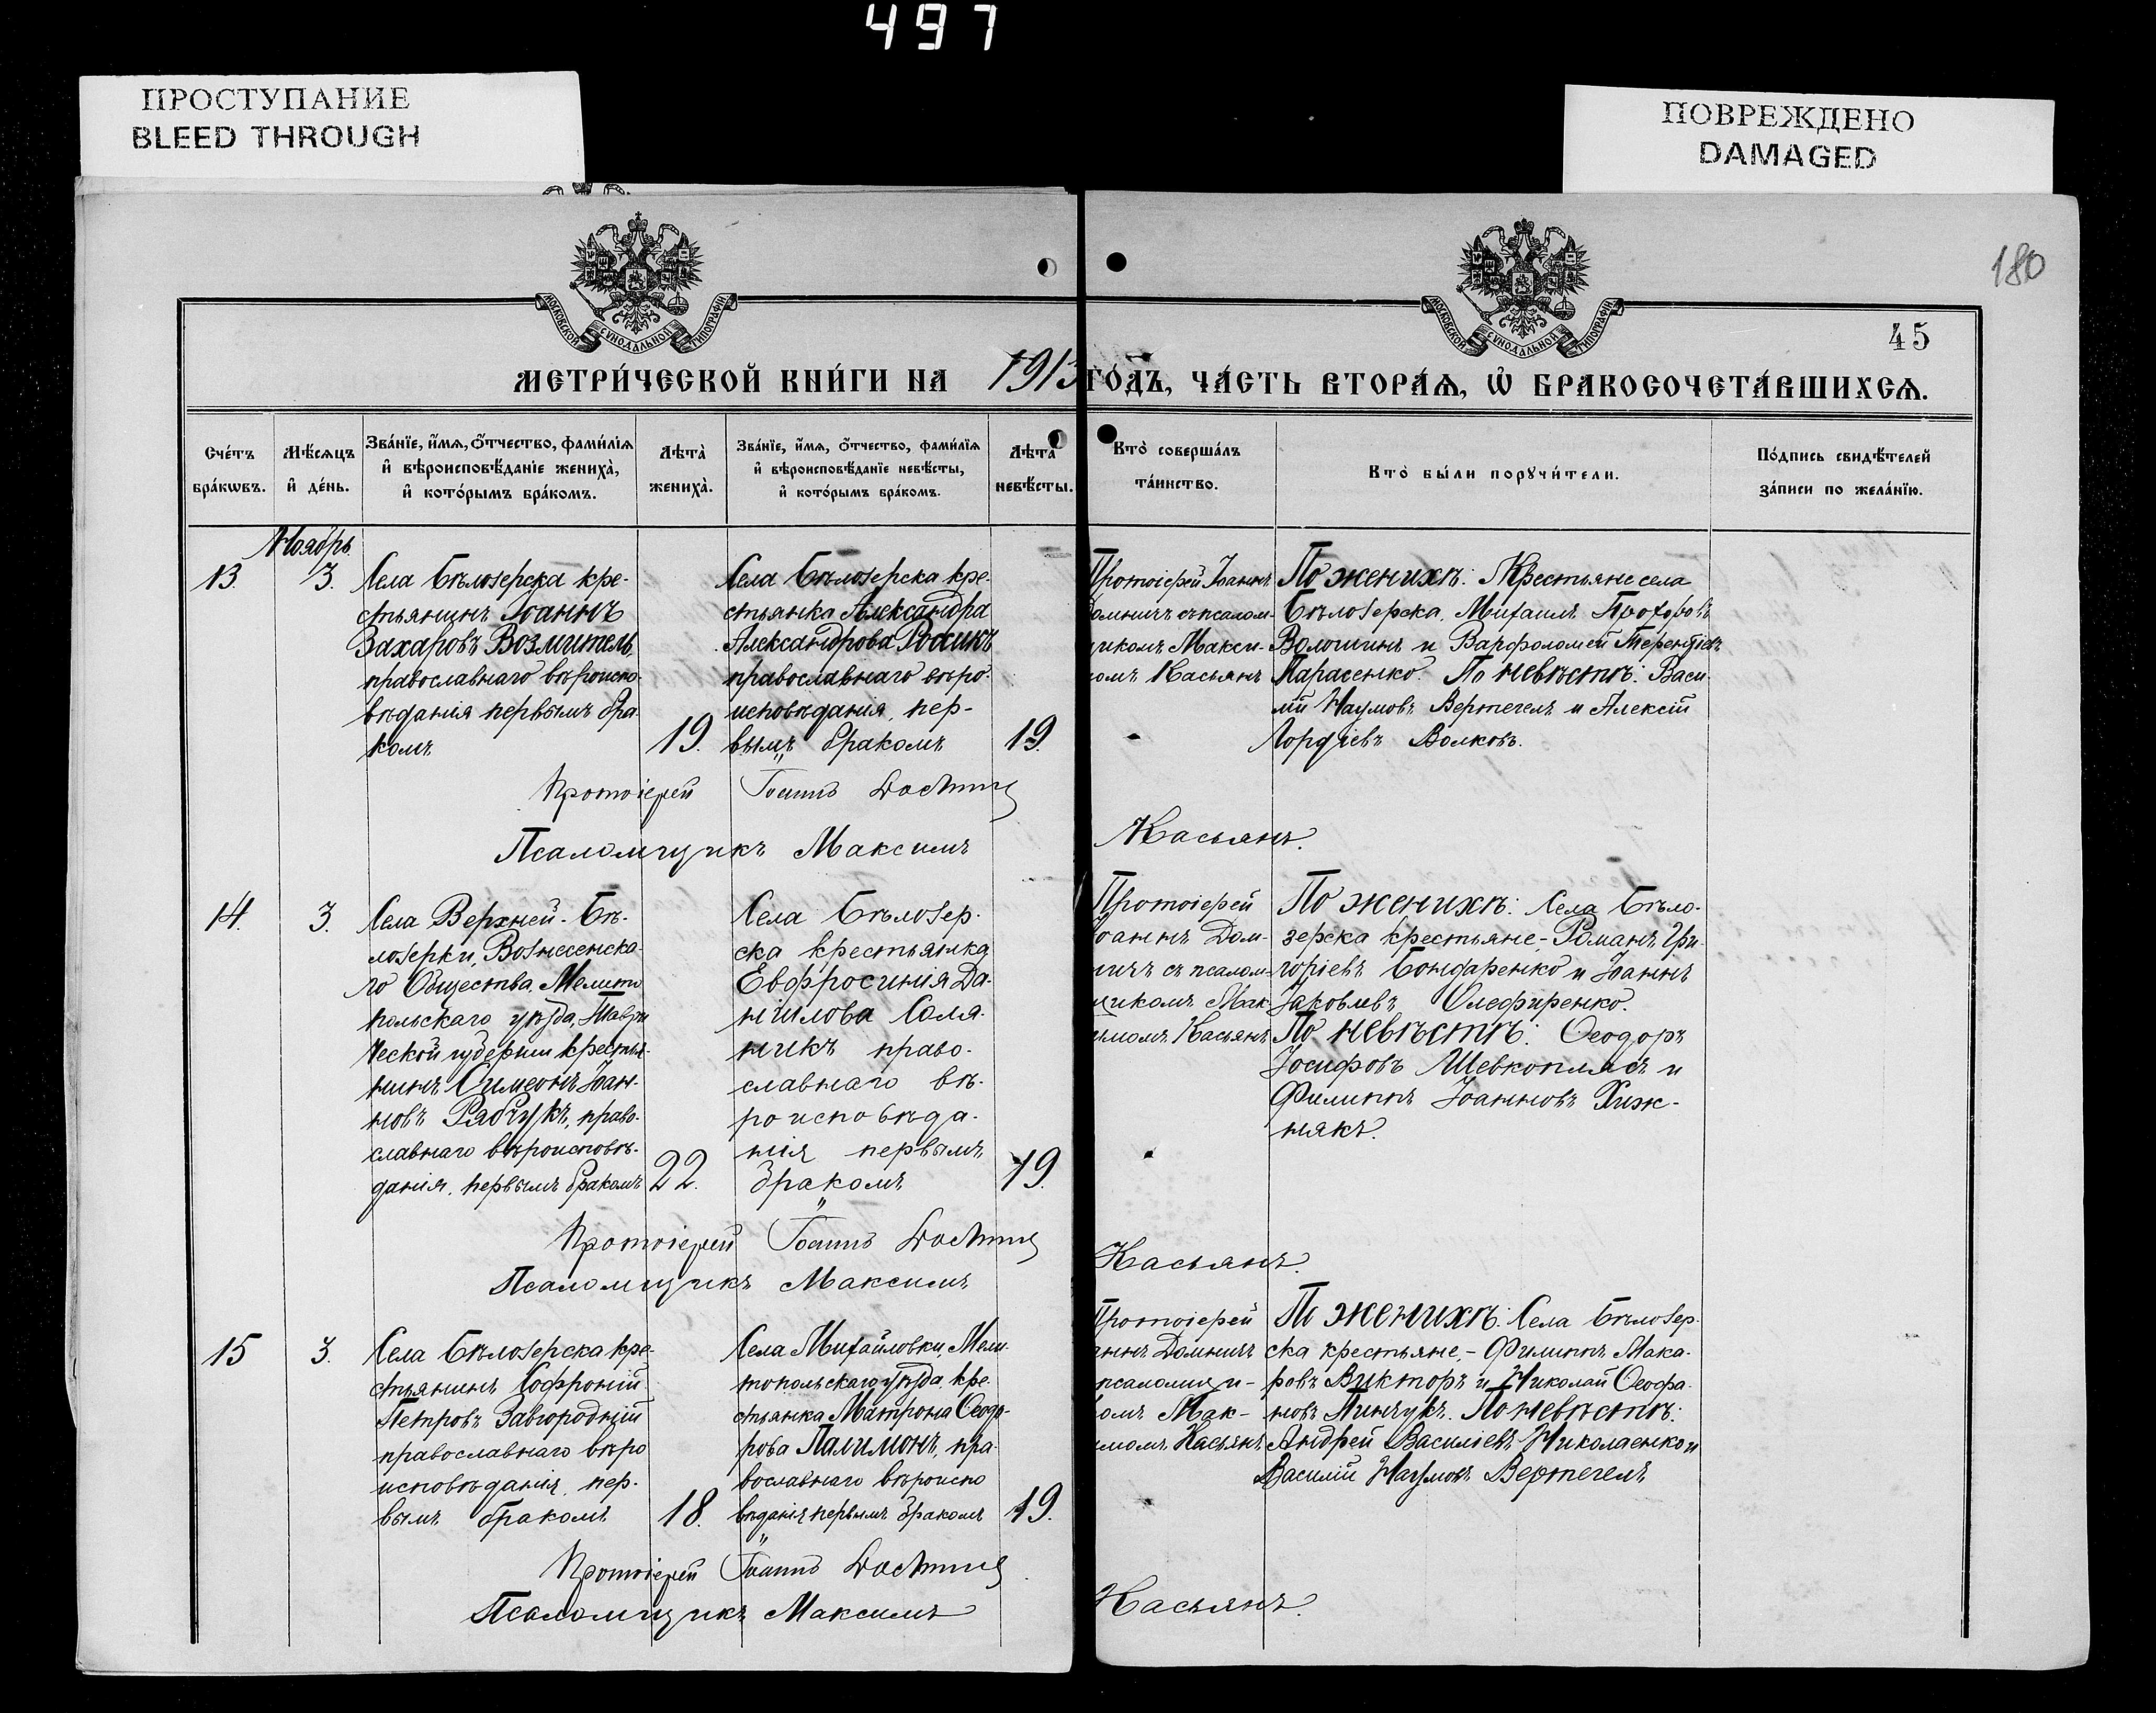 497
ПРОСТУПАНИЕ
BLEED THROUGH
ПОВРЕЖДЕНО
DAMAGED
180
МОСКОВСКОЙ СѴНОДАЛЬНОЙ ТИПОГРАФІИ
МОСКОВСКОЙ СѴНОДАЛЬНОЙ ТИПОГРАФІИ
45
МЕТРИ́ЧЕСКОЙ КНИ́ГИ НА 1913 ГО́ДЪ, ЧА́СТЬ ВТОРА́Ѧ, Ѡ БРАКОСОЧЕТА́ВШИХСѦ.
Сче́тъ
бра́кѡвъ.
Мѣ́сѧцъ
и де́нь.
Зва́нїе, и́мѧ, о́тчество, фами́лїѧ
и вѣроисповѣ́данїе жениха̀,
и кото́рымъ бра́комъ.
Лѣта̀
жениха̀.
Зва́нїе, и́мѧ, о́тчество, фами́лїѧ
и вѣроисповѣ́данїе невѣ́сты,
и кото́рымъ бра́комъ.
Лѣта̀
невѣ́сты.
Кто̀ соверша́лъ
та́инство.
Кто̀ бы́ли порꙋчи́тели.
По́дпись свидѣ́телей
за́писи по жела́нїю.
Ноябрь.
13.
3.
Села Бѣлозерска кре-
стьянинъ Іоаннъ
Захаровъ Возмитель
православнаго вѣроиспо-
вѣданія первымъ бра-
комъ.
19.
Села Бѣлозерска кре-
стьянка Александра
Александрова
православнаго вѣро-
исповѣданія, пер-
вымъ бракомъ
19.
Протоіерей Іоаннъ
Домничъ съ псалом-
щикомъ Макси-
момъ Касьянъ
По женихѣ: Крестьяне села
Бѣлозерска, Михаилъ
Волошинъ и Варфоломей Терентіевъ
Тарасенко. По невѣстѣ: Васи-
лій Наумовъ Вертегелъ и Алексій
Гордіевъ Волковъ.
Протоіерей Іоаннъ Домничъ
Псаломщикъ Максимъ Касьянъ.
14.
3.
Села Верхней-Бѣ-
лозерки, Вознесенска-
го Общества, Мелито
польскаго уѣзда, Таври
ческой губерніи крестья-
нинъ Симеонъ Іоан-
новъ Рябчукъ, право-
славнаго вѣроисповѣ-
данія, первымъ бракомъ
22.
Села Бѣлозер-
ска крестьянка
Евфросинія Да-
ніилова Соля-
никъ право-
славнаго вѣ-
роисповѣда-
нія первымъ
бракомъ
19.
Протоіерей
Іоаннъ Дом-
ничъ съ псалом-
щикомъ Мак-
симомъ Касьянъ
По женихѣ: Села Бѣло-
зерска крестьяне,- Романъ Гри-
горіевъ Бондаренко и Іоаннъ
Іаковлевъ Олефиренко.
По невѣстѣ: Ѳеодоръ
Іосифовъ Шевкоплясъ и
Филиппъ Іоанновъ Хиж-
някъ.
Протоіерей Іоаннъ Домничъ
Псаломщикъ Максимъ Касьянъ.
15
3.
Села Бѣлозерска кре-
стьянинъ Софроній
Петровъ Завгородній
православнаго вѣро
исповѣданія, пер-
вымъ бракомъ
18.
Села Михайловки, Мели-
топольскаго уѣзда, кре-
стьянка Матрона Ѳеодо-
рова Палимонъ, пра-
вославнаго вѣроиспо
вѣданія первымъ бракомъ
19.
Протоіерей
Іоаннъ Домничъ
псаломщи-
комъ Мак-
симомъ Касьянъ
По женихѣ: Села Бѣлозер-
ска крестьяне,- Филиппъ Мака-
ровъ Викторъ и Николай Ѳеофа-
новъ Пинчукъ. По невѣстѣ:
Андрей Василіевъ Николаенко и
Василій Наумовъ Вертегелъ
Протоіерей Іоаннъ Домничъ
Псаломщикъ Максимъ Касьянъ.